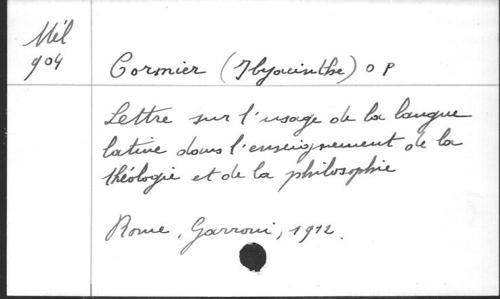 Mél
904
Cormier (Hyacinthe) O P
Lettre sur l'usage de la langue
latine dans l'enseignement de la
théologie et de la philosophie
Rome, Garroni, 1912.